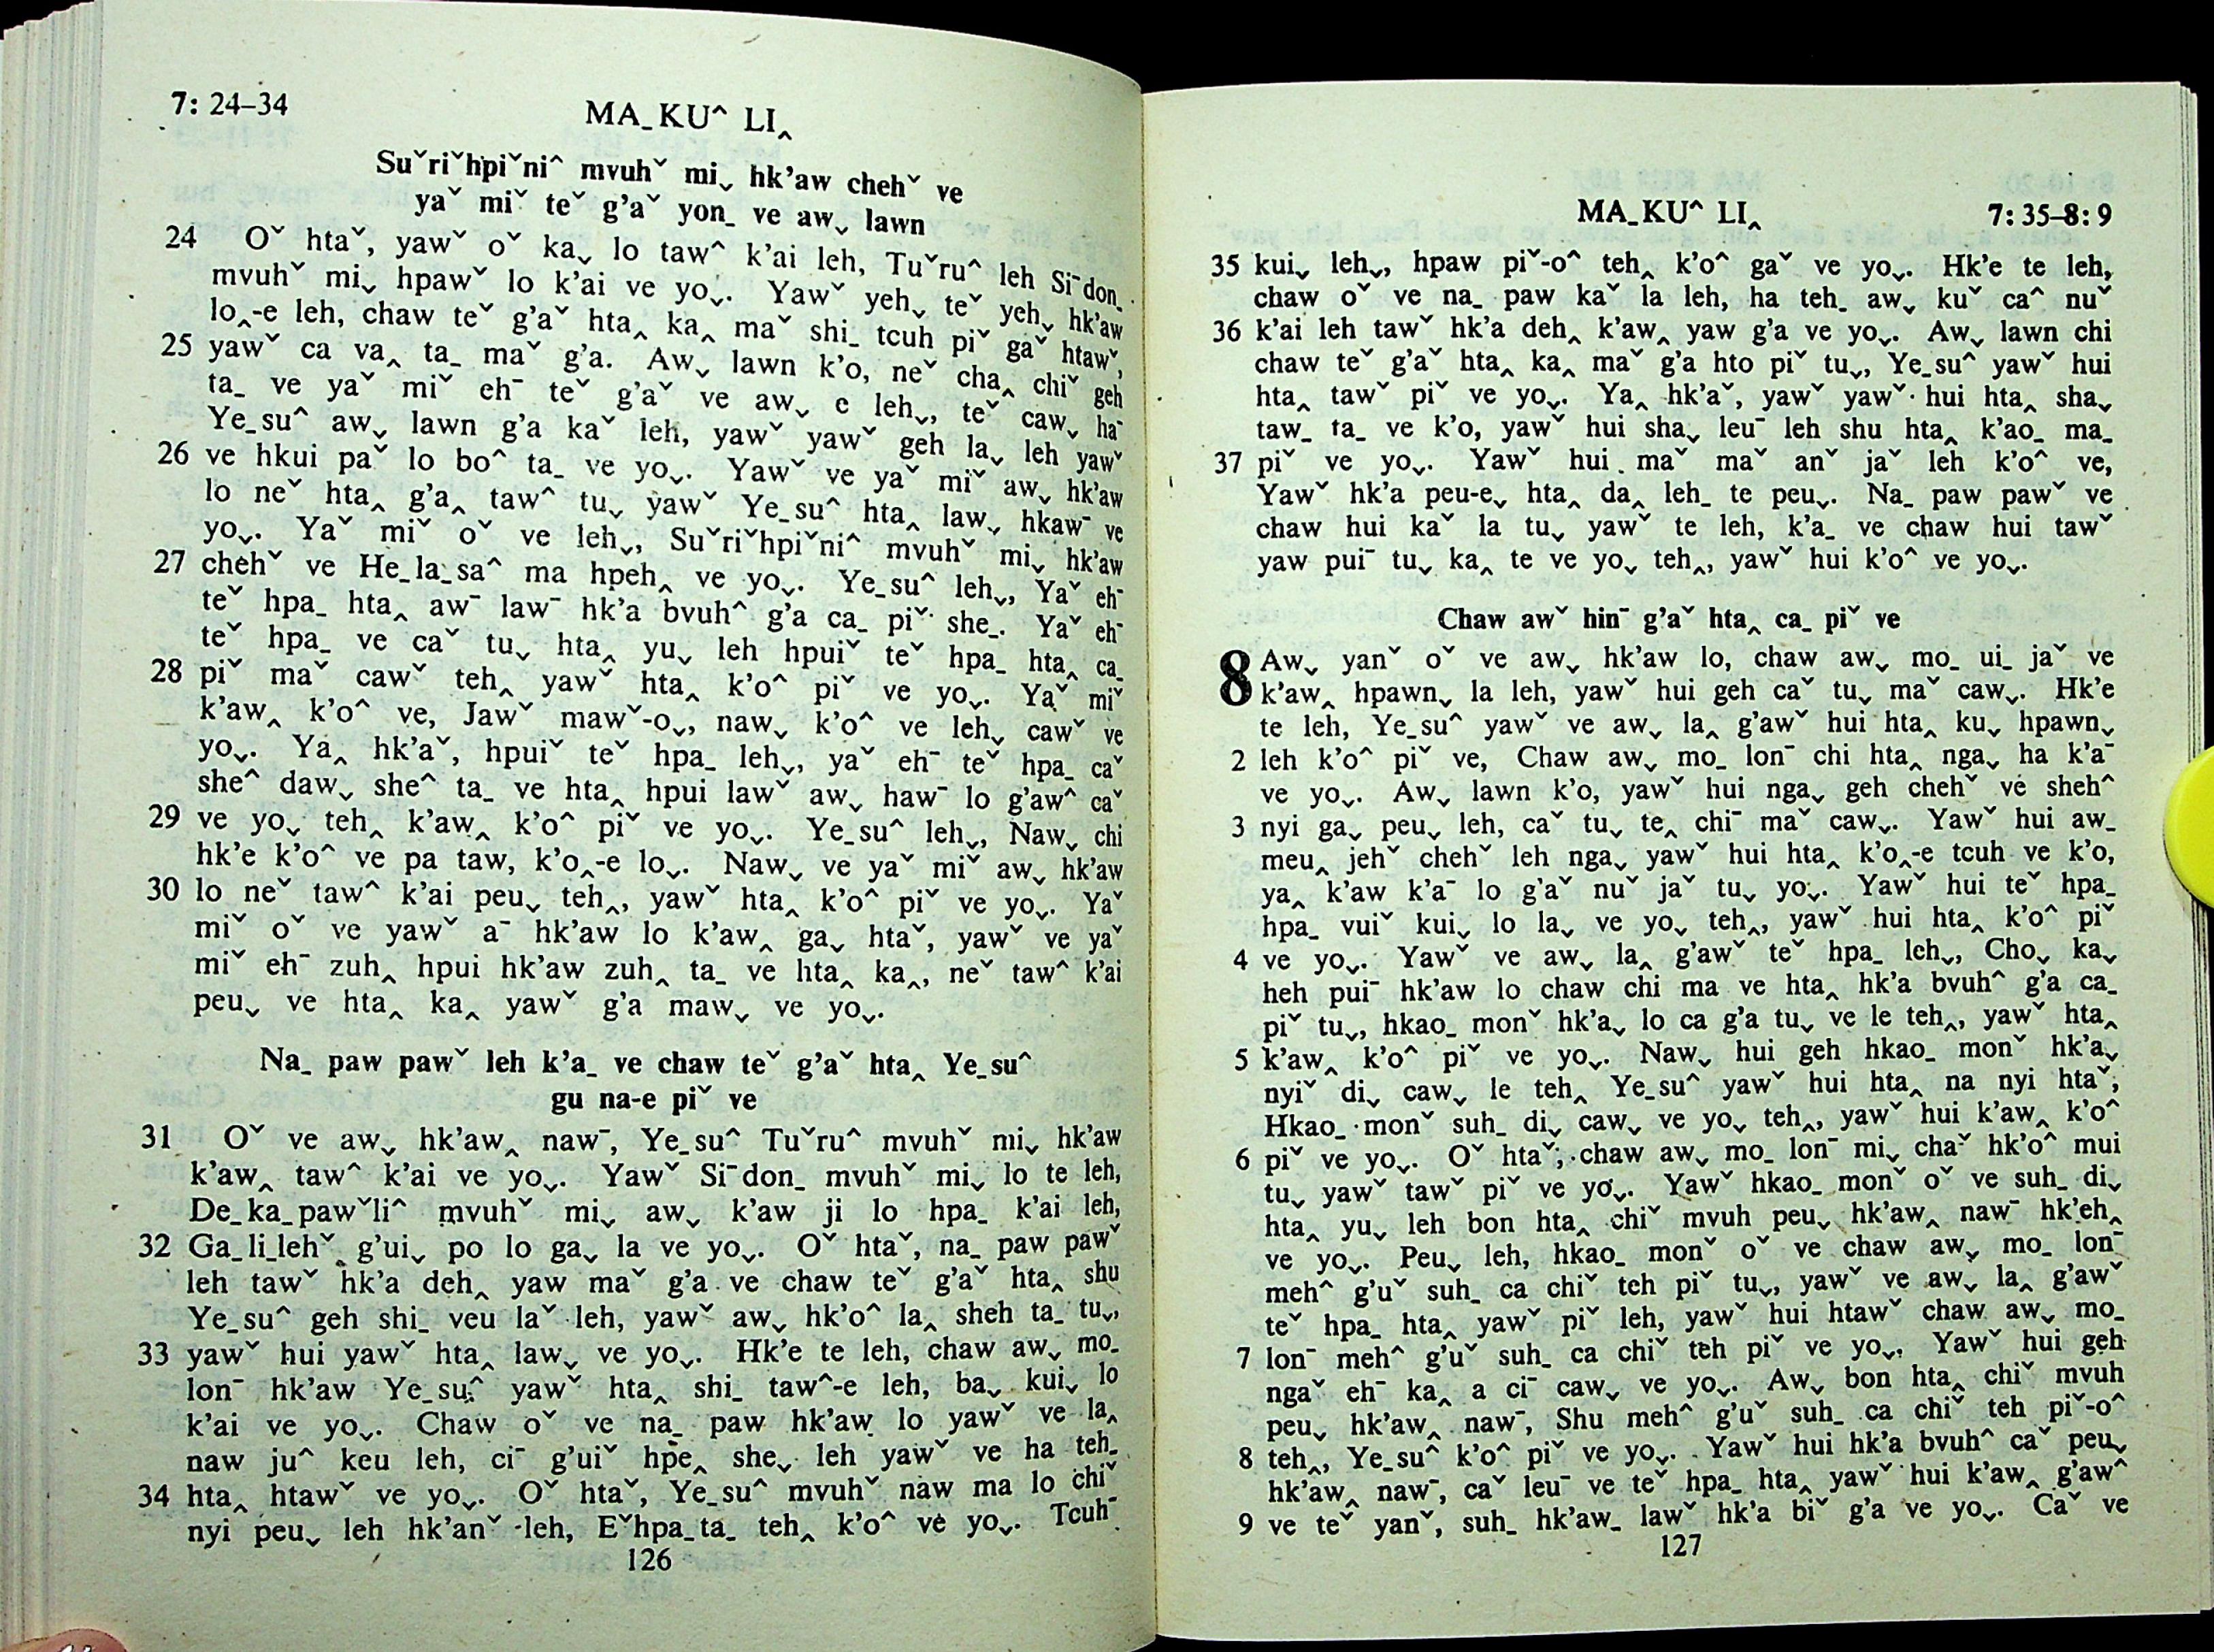 7: 24–34
MA_KUˆ LI‸
Suˇriˇhpiˇniˆ mvuhˇ miˬ hk’aw chehˇ ve
yaˇ miˇ teˇ g’aˇ yon_ ve awˬ lawn
24 Oˇ htaˇ, yawˇ oˇ kaˬ lo tawˆ k’ai leh, Tuˇruˆ leh Siˉdon_
mvuhˇ miˬ hpawˇ lo k’ai ve yoˬ. Yawˇ yehˬ teˇ yehˬ hk’aw
lo‸-e leh, chaw teˇ g’aˇ hta‸ ka‸ maˇ shi_ tcuh piˇ gaˇ htawˇ,
25 yawˇ ca va‸ ta_ maˇ g’a. Awˬ lawn k’o, neˇ cha‸ chiˇ geh
ta_ ve yaˇ miˇ ehˉ teˇ g’aˇ ve awˬ e lehˬ, teˇ cawˬ haˉ
Ye_suˆ awˬ lawn g’a kaˇ leh, yawˇ yawˇ geh laˬ leh yawˇ
26 ve hkui paˇ lo boˆ ta_ ve yoˬ. Yawˇ ve yaˇ miˇ awˬ hk’aw
lo neˇ hta‸ g’a‸ tawˆ tuˬ yawˇ Ye_suˆ hta‸ lawˬ hkawˉ ve
yoˬ. Yaˇ miˇ oˇ ve lehˬ, Suˇriˇhpiˇniˆ mvuhˇ miˬ hk’aw
27 chehˇ ve He_la_saˆ ma hpeh‸ ve yoˬ. Ye_suˆ lehˬ, Yaˇ ehˉ
teˇ hpa_ hta‸ awˉ lawˉ hk’a bvuhˆ g’a ca_ piˇ she_. Yaˇ ehˉ
teˇ hpa_ ve caˇ tuˬ hta‸ yuˬ leh hpuiˇ teˇ hpa_ hta‸ ca_
28 piˇ maˇ cawˇ teh‸ yawˇ hta‸ k’oˆ piˇ ve yoˬ. Yaˇ miˇ
k’aw‸ k’oˆ ve, Jawˇ mawˇ-oˬ, nawˬ k’oˆ ve lehˬ cawˇ ve
yoˬ. Ya‸ hk’aˇ, hpuiˇ teˇ hpa_ lehˬ, yaˇ ehˉ teˇ hpa_ caˇ
sheˆ dawˬ sheˆ ta_ ve hta‸ hpui lawˇ awˬ hawˉ lo g’awˆ caˇ
29 ve yoˬ teh‸ k’aw‸ k’oˆ piˇ ve yoˬ. Ye_suˆ lehˬ, Nawˬ chi
hk’e k’oˆ ve pa taw, k’o‸-e loˬ. Nawˬ ve yaˇ miˇ awˬ hk’aw
30 lo neˇ tawˆ k’ai peuˬ teh‸, yawˇ hta‸ k’oˆ piˇ ve yoˬ. Yaˇ
miˇ oˇ ve yawˇ aˉ hk’aw lo k’aw‸ gaˬ htaˇ, yawˇ ve yaˇ
miˇ ehˉ zuh‸ hpui hk’aw zuh‸ ta_ ve hta‸ ka‸, neˇ tawˆ k’ai
peuˬ ve hta‸ ka‸ yawˇ g’a mawˬ ve yoˬ.
Na_ paw pawˇ leh k’a_ ve chaw teˇ g’aˇ hta‸ Ye_suˆ
gu na-e piˇ ve
31 Oˇ ve awˬ hk’aw‸ nawˉ, Ye_suˆ Tuˇruˆ mvuhˇ miˬ hk’aw
k’aw‸ tawˆ k’ai ve yoˬ. Yawˇ Siˉdon_ mvuhˇ miˬ lo te leh,
De_ka_pawˇliˆ mvuhˇ miˬ awˬ k’aw ji lo hpa_ k’ai leh,
32 Ga_li_lehˇ g’uiˬ po lo gaˬ la ve yoˬ. Oˇ htaˇ, na_ paw pawˇ
leh tawˇ hk’a deh‸ yaw maˇ g’a ve chaw teˇ g’aˇ hta‸ shu
Ye_suˆ geh shi_ veu laˇ leh, yawˇ awˬ hk’oˆ la‸ sheh ta_ tuˬ,
33 yawˇ hui yawˇ hta‸ lawˬ ve yoˬ. Hk’e te leh, chaw awˬ mo_
lonˉ hk’aw Ye_suˆ yawˇ hta‸ shi_ tawˆ-e leh, baˬ kuiˬ lo
k’ai ve yoˬ. Chaw oˇ ve na_ paw hk’aw lo yawˇ ve la‸
naw juˆ keu leh, ciˉ g’uiˇ hpe‸ sheˬ leh yawˇ ve ha teh_
34 hta‸ htawˇ ve yoˬ. Oˇ htaˇ, Ye_suˆ mvuhˇ naw ma lo chiˇ
nyi peuˬ leh hk’anˇ leh, Eˇhpa_ta_ teh‸ k’oˆ ve yoˬ. Tcuhˉ
126
MA_KUˆ LI‸
7: 35–8: 9
35 kuiˬ lehˬ, hpaw piˇ-oˆ teh‸ k’oˆ gaˇ ve yoˬ. Hk’e te leh,
chaw oˇ ve na_ paw kaˇ la leh, ha teh_ awˬ kuˇ caˆ nuˇ
36 k’ai leh tawˇ hk’a deh‸ k’aw‸ yaw g’a ve yoˬ. Awˬ lawn chi
chaw teˇ g’aˇ hta‸ ka‸ maˇ g’a hto piˇ tuˬ, Ye_suˆ yawˇ hui
hta‸ tawˇ piˇ ve yoˬ. Ya‸ hk’aˇ, yawˇ yawˇ hui hta‸ shaˬ
taw_ ta_ ve k’o, yawˇ hui shaˬ leuˉ leh shu hta‸ k’ao_ ma_
37 piˇ ve yoˬ. Yawˇ hui maˇ maˇ anˇ jaˇ leh k’oˆ ve,
Yawˇ hk’a peu-eˬ hta‸ da‸ leh_ te peuˬ. Na_ paw pawˇ ve
chaw hui kaˇ la tuˬ yawˇ te leh, k’a_ ve chaw hui tawˇ
yaw puiˉ tuˬ ka‸ te ve yoˬ teh‸, yawˇ hui k’oˆ ve yoˬ.
Chaw awˇ hinˉ g’aˇ hta‸ ca_ piˇ ve
8 Awˬ yanˇ oˇ ve awˬ hk’aw lo, chaw awˬ mo_ ui_ jaˇ ve
k’aw‸ hpawnˬ la leh, yawˇ hui geh caˇ tuˬ maˇ cawˬ. Hk’e
te leh, Ye_suˆ yawˇ ve awˬ la‸ g’awˇ hui hta‸ kuˬ hpawnˬ
2 leh k’oˆ piˇ ve, Chaw awˬ mo_ lonˉ chi hta‸ ngaˬ ha k’aˉ
ve yoˬ. Awˬ lawn k’o, yawˇ hui ngaˬ geh chehˇ ve shehˆ
3 nyi gaˬ peuˬ leh, caˇ tuˬ te‸ chiˉ maˇ cawˬ. Yawˇ hui aw_
meu‸ jehˇ chehˇ leh ngaˬ yawˇ hui hta‸ k’o‸-e tcuh ve k’o,
ya‸ k’aw k’aˉ lo g’aˇ nuˇ jaˇ tuˬ yoˬ. Yawˇ hui teˇ hpa_
hpa_ vuiˇ kuiˬ lo laˬ ve yoˬ teh‸, yawˇ hui hta‸ k’oˆ piˇ
4 ve yoˬ. Yawˇ ve awˬ la‸ g’awˇ teˇ hpa_ lehˬ, Choˬ kaˬ
heh puiˉ hk’aw lo chaw chi ma ve hta‸ hk’a bvuhˆ g’a ca_
piˇ tuˬ, hkao_ monˇ hk’aˬ lo ca g’a tuˬ ve le teh‸, yawˇ hta‸
5 k’aw‸ k’oˆ piˇ ve yoˬ. Nawˬ hui geh hkao_ monˇ hk’aˬ
nyiˇ diˬ cawˬ le teh‸ Ye_suˆ yawˇ hui hta‸ na nyi htaˇ,
Hkao_ monˇ suh_ diˬ cawˬ ve yoˬ teh‸, yawˇ hui k’aw‸ k’oˆ
6 piˇ ve yoˬ. Oˇ htaˇ, chaw awˬ mo_ lonˉ miˬ chaˇ hk’oˆ mui
tuˬ yawˇ tawˇ piˇ ve yoˬ. Yawˇ hkao_ monˇ oˇ ve suh_ diˬ
hta‸ yuˬ leh bon hta‸ chiˇ mvuh peuˬ hk’aw‸ nawˉ hk’eh‸
ve yoˬ. Peuˬ leh, hkao_ monˇ oˇ ve chaw awˬ mo_ lonˉ
mehˆ g’uˇ suh_ ca chiˇ teh piˇ tuˬ, yawˇ ve awˬ la‸ g’awˇ
teˇ hpa_ hta‸ yawˇ piˇ leh, yawˇ hui htawˇ chaw awˬ mo_
7 lonˉ mehˆ g’uˇ suh_ ca chiˇ teh piˇ ve yoˬ, Yawˇ hui geh
ngaˇ ehˉ ka‸ a ciˉ cawˬ ve yoˬ. Awˬ bon hta‸ chiˇ mvuh
peuˬ hk’aw‸ nawˉ, Shu mehˆ g’uˇ suh_ ca chiˇ teh piˇ-oˆ
8 teh‸, Ye_suˆ k’oˆ piˇ ve yoˬ. Yawˇ hui hk’a bvuhˆ caˇ peuˬ
hk’aw‸ nawˉ, caˇ leuˉ ve teˇ hpa_ hta‸ yawˇ hui k’aw‸ g’awˆ
9 ve teˇ yanˇ, suh_ hk’aw_ lawˇ hk’a biˇ g’a ve yoˬ. Caˇ ve
127